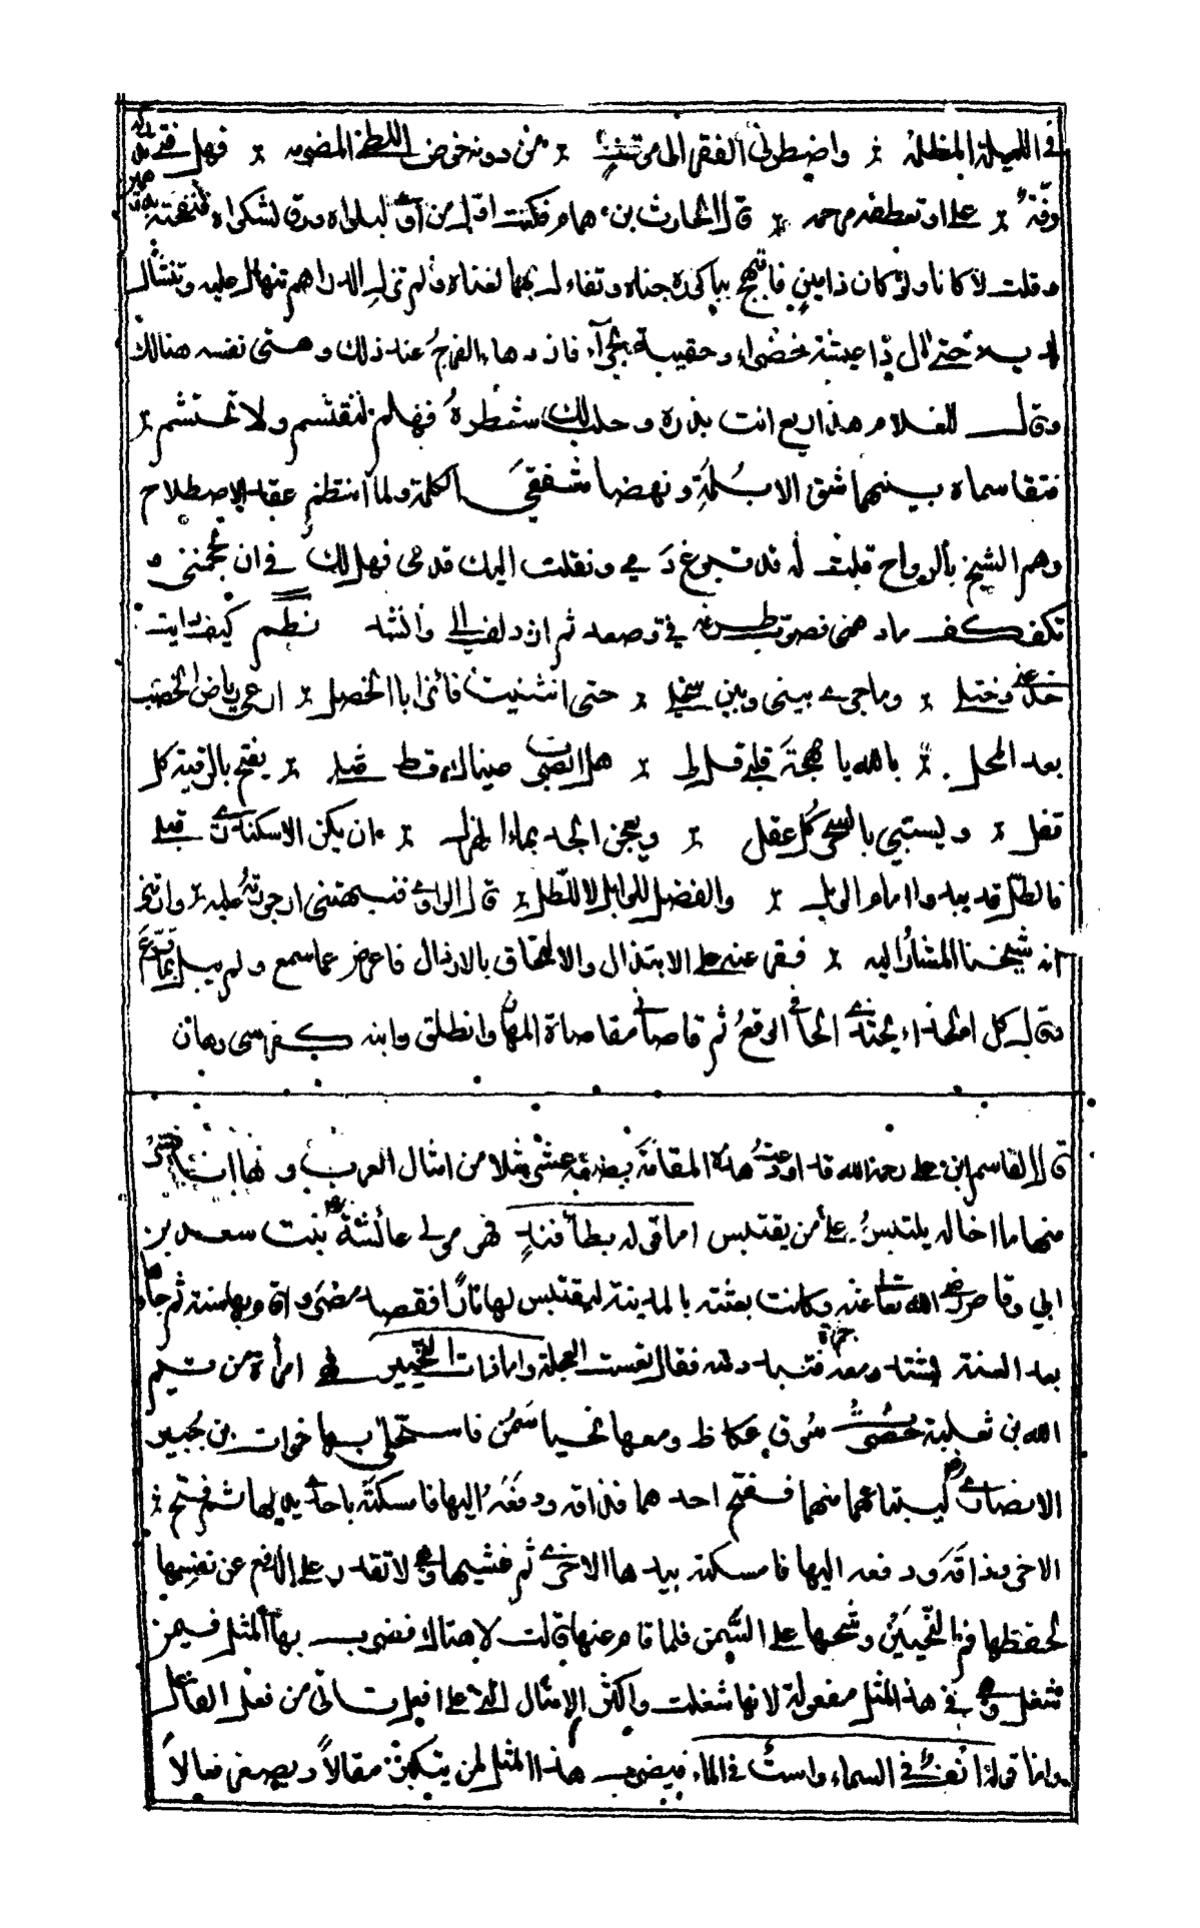 في الليلة المظلمة ٪ واضطرني الفقر الى موقف ٪ من دونه خوض اللظى المضرمه ٪ فهل فتى تدركه
رقّة ٪ علي او تعطفه مرحمه ٪ قال الحارث بن همام فكنت اول من اوى لبلواه ورق لشكواه فنفحته بدرهمين
وقلت لا كانا ولو كان ذا مين فابتهج بباكورة جناه وتفاءل بهما لغناه ولم تزل الدراهم تنهال عليه وتنثال
لديه حتى آل ذا عيشة خضراء وحقيبة بجراء فازدهاه الفرح عند ذلك وهنى نفسه هنالك
وقال للغلام هذا ريع انت بذره وحلب لك شطره فهلم لنقتسم ولا تحتشم ٪
فتقاسماه بينهما شق الابلمة ونهضا متفقي الكلمة ولما انتظم عقد الاصطلاح
وهم الشيخ بالرواح قلت له قد تبوغ دمي ونقلت اليك قدمي فهل لك في ان تحجمني و
تكف كف ما دهمني فصوب طرفه في وصعد ثم ازدلف الي وانشد نظم كيف رايت
خدعتي وختلي ٪ وما جرى بيني وبين سخلي ٪ حتى انثنيت فائزا بالخصل ٪ ارعى رياض الخصب
بعد المحل ٪ بالله يا مهجة قلبي قل لي ٪ هل ابصرت عيناك قط مثلي ٪ يفتح بالرقية كل
قفل ٪ ويستبي بالسحر كل عقل ٪ ويعجن الجد بماء الهزل ٪ ان يكن الاسكندري قبلي
فالطل قد يبدو امام الوبل ٪ والفضل للوابل لا للطل ٪ قال الراوي فنبهتني ارجوزته عليه ٪ وارتني
انه شيخنا المشار اليه ٪ فقرعته على الابتذال والالتحاق بالارذال فاعرض عما سمع ولم يبل بما قرع
وقال كل الحذاء يحتذي الحافي الوقع ثم قاصاني مقاصاة المهان وانطلق وابنه كفرسي رهان
قال القاسم ابن علي رحمه الله قد اودعت هذه المقامة بضعة عشر مثلا من امثال العرب وها انا افسر
منها ما اخاله يلتبس على من يقتبس اما قوله بطأ فند فهو مولى عائشة بنت سعد بن
ابي وقاص رضي الله تعا عنه وكانت بعثته بالمدينة ليقتبس لها نارا فقصد مصر واقام بها سنة ثم جاء
بعد السنة يشتد ومعه جمرة فتبدد منه فقال تعست العجلة واما ذات النحيين فهي امرأة من تيم
الله بن ثعلبة حضرت سوق عكاظ ومعها نحيا سمن فاستخلى بها خوات بن جبير
الانصاري ليبتاعهما منها ففتح احدهما فذاقه ودفعه اليها فامسكته باحدى يديها ثم فتح
الاخر وذاقه ودفعه اليها فامسكته بيدها الاخرى ثم غشيها وهي لا تقدر على الدفع عن نفسها
لحفظها فم النحيين وشحها على السمن فلما قام عنها قالت لا هناك فضرب بها المثل فيمن
شغل وهي في هذا المثل مفعولة لانها شغلت واكثر الامثال التي على افعل تاتي من فعل الفاعل
واما قوله انف في السماء واست في الماء فيضرب هذا المثل لمن يتكبر مقالا ويصغر فعالا